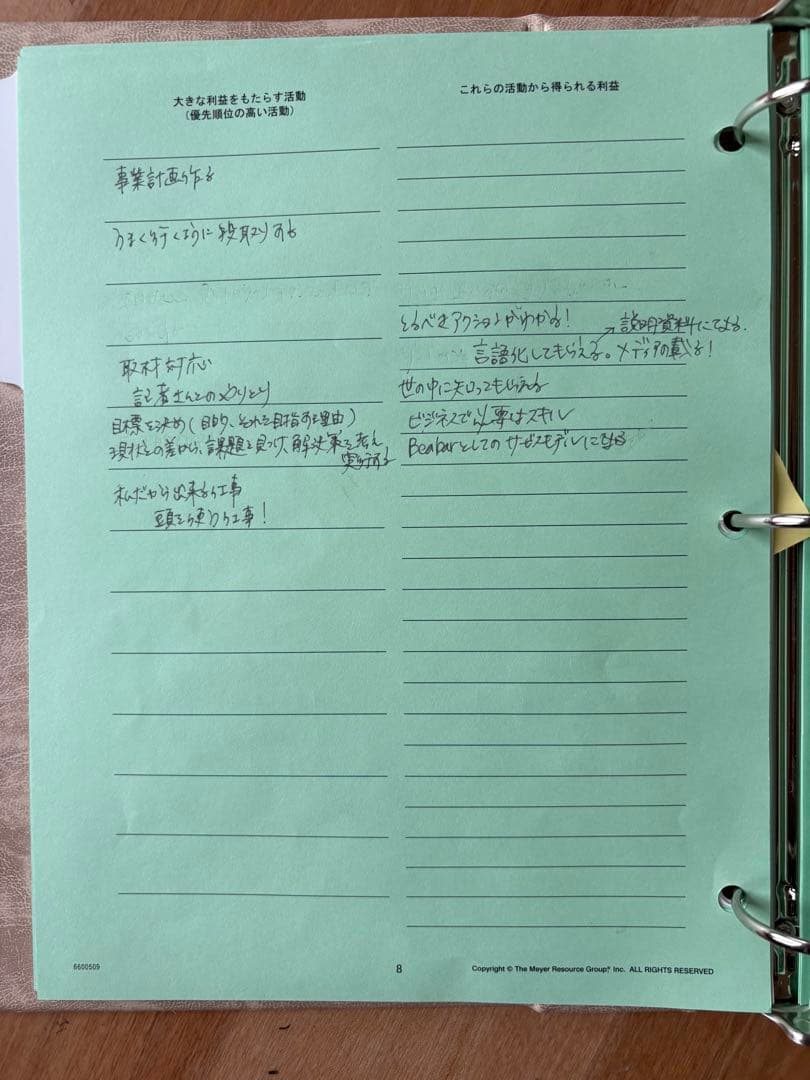 大きな利益をもたらす活動
（優先順位の高い活動）
これらの活動から得られる利益
事業計画作る
うまく行くように段取りする
取材対応
記者さんとのやりとり
目標を決め(目的、それを目指す理由)
現状との差から、課題を見つけ、解決策を考え
実行する
私だから出来る工事
頭を使う工事!
とるべきアクションがわかる!
→説明資料にできる.
言語化してもらえる。メディアの載る!
世の中に知ってもらえる
ビジネスで必要なスキル
Beabarとしてのサービスモデルになる
6600509
8
Copyright © The Meyer Resource Group, Inc. ALL RIGHTS RESERVED